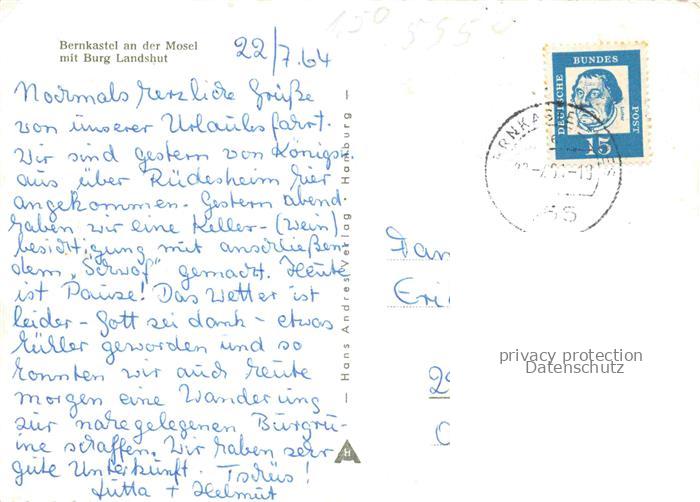 Bernkastel an der Mosel
mit Burg Landshut
22/7.64
Nochmals herzliche Grüße
von unserer Urlaubsfahrt.
Wir sind gestern von Königst.
aus über Rüdesheim hier
angekommen. Gestern abend
haben wir eine Keller- (Wein)
besichtigung mit anschließen-
dem „Schwof" gemacht. Heute
ist Pause! Das Wetter ist
leider - Gott sei dank - etwas
kühler geworden und so
konnten wir auch heute
morgen eine Wanderung
zur nahegelegenen Burgru-
ine schaffen. Wir haben sehr
gute Unterkunft. Tschüs!
Jutta + Helmut
Hans Andres Verlag · Hamburg
DEUTSCHE BUNDES POST
15
Eri
privacy protection
Datenschutz